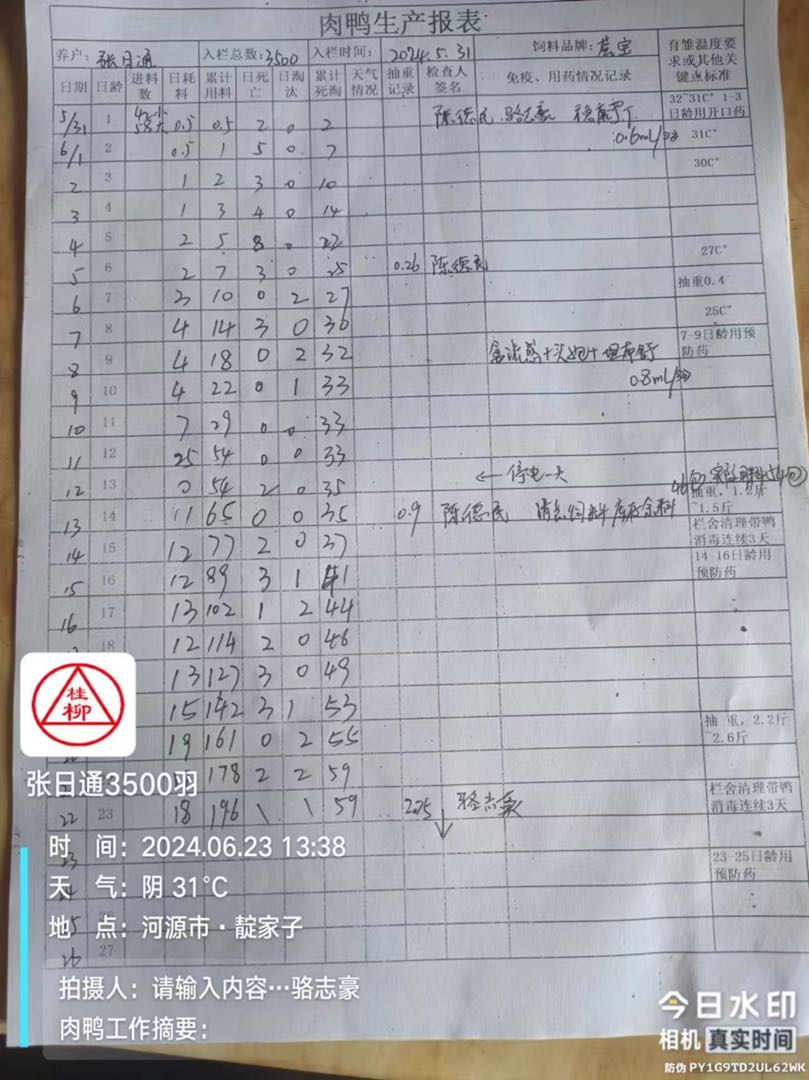 肉鸭生产报表
养户: 张日通 入栏总数: 3500 入栏时间: 2024.5.31 饲料品牌: 宝 有雏温度要求或其他关键点标准
日期 日龄 进料数 日耗料 累计用料 日死亡 日淘汰 累计死淘 天气情况 抽重记录 检查人签名 免疫、用药情况记录
5/31 1 0.5 0.5 2 0 2 陈德民 骆志豪 32~31C° 1-3日龄用开口药
6/1 2 0.5 1 5 0 7 0.6ml/羽 31C°
2 3 1 2 3 0 10 30C°
3 4 1 3 4 0 14
4 5 2 5 8 0 22
5 6 2 7 3 0 25 0.26 陈德民 27C°
6 7 3 10 0 2 27 抽重0.4
7 8 4 14 3 0 30 25C°
8 9 4 18 0 2 32 7-9日龄用预防药
9 10 4 22 0 1 33 0.8ml/羽
10 11 7 29 0 0 33
11 12 25 54 0 0 33
12 13 0 54 2 0 35 ←停电一天 抽重,1.2斤~1.5斤
13 14 11 65 0 0 35 0.9 陈德民 饲料库存余料 栏舍清理带鸭消毒连续3天
14 15 12 77 2 0 37 14-16日龄用预防药
15 16 12 89 3 1 41
16 17 13 102 1 2 44
18 12 114 2 0 46
13 127 3 0 49
15 142 3 1 53 抽重,2.2斤~2.6斤
19 161 0 2 55
178 2 2 59
22 23 18 196 \ \ 59 2.75 骆志豪 栏舍清理带鸭消毒连续3天
23 23-25日龄用预防药
26 27
桂柳
张日通3500羽
时 间: 2024.06.23 13:38
天 气: 阴 31℃
地 点: 河源市·靛家子
拍摄人: 请输入内容…骆志豪
肉鸭工作摘要:
今日水印
相机 真实时间
防伪 PY1G9TD2UL62WK